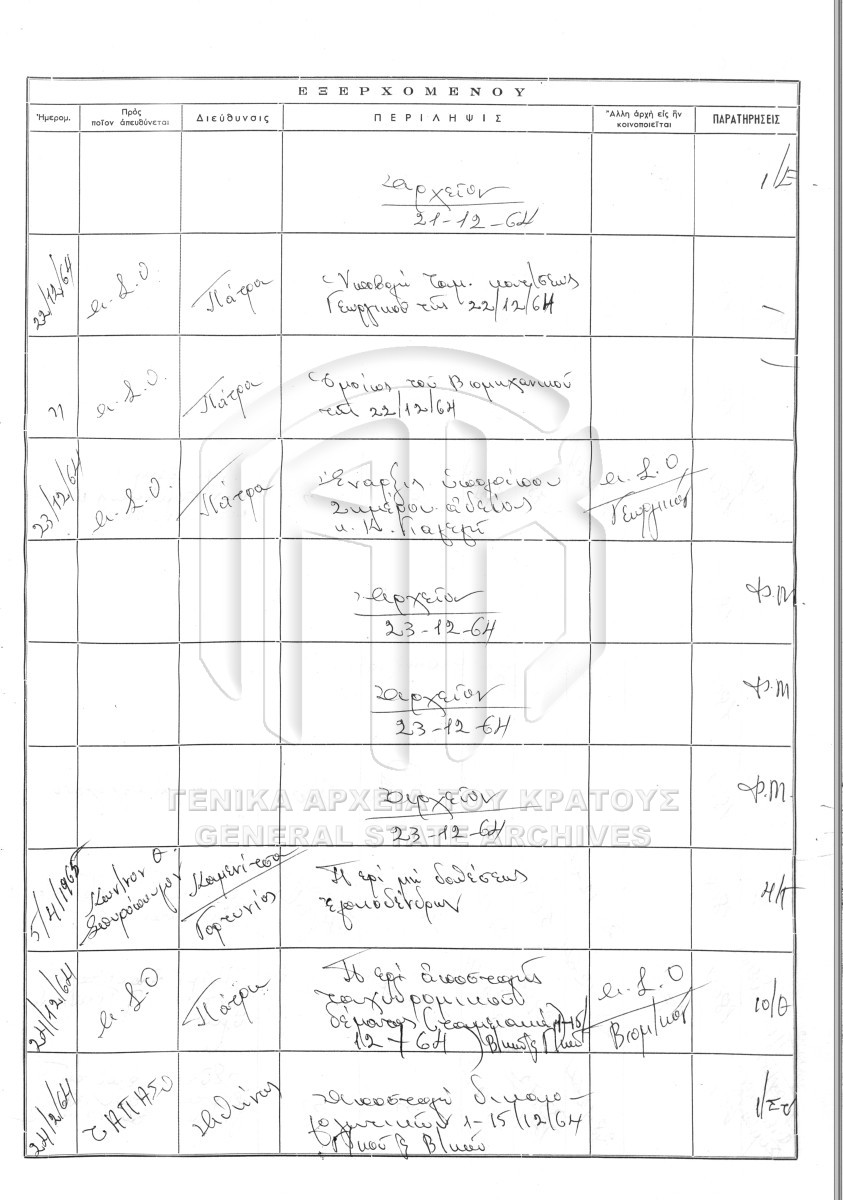 ΕΞΕΡΧΟΜΕΝΟΥ
Ἡμερομ.
Πρὸς
ποῖον ἀπευθύνεται
Διεύθυνσις
ΠΕΡΙΛΗΨΙΣ
Ἄλλη ἀρχὴ εἰς ἣν
κοινοποιεῖται
ΠΑΡΑΤΗΡΗΣΕΙΣ
Ἀρχεῖον
21-12-64
1/Ε
22/12/64
Α.Σ.Ο.
Πάτρα
Ὑποβολὴ
Γεωργικοῦ τῆς 22/12/64
"
Α.Σ.Ο.
Πάτρα
Ὁμοίως τοῦ Βιομηχανικοῦ
τῆς 22/12/64
23/12/64
Α.Σ.Ο.
Πάτρα
Ἔναρξις ὑπολοίπου
ἀδείας
κ. Κ.
Α.Σ.Ο
Γεωργικοῦ
Ἀρχεῖον
23-12-64
Φ.Π.
Ἀρχεῖον
23-12-64
Φ.Π
Ἀρχεῖον
23-12-64
Φ.Π.
ΓΕΝΙΚΑ ΑΡΧΕΙΑ ΤΟΥ ΚΡΑΤΟΥΣ
GENERAL STATE ARCHIVES
5/4/1965
Κων/νον Θ
Σπυρόπουλον
Καμενίτσα
Γορτυνίας
Περὶ μὴ διαθέσεως
ἐλαιοδένδρων
4/Π
24/12/64
Α.Σ.Ο
Πάτρα
Περὶ ἀποστολῆς
ταχυδρομικοῦ
δέματος
12-64
Α.Σ.Ο
Βιομ/κοῦ
10/Θ
24/12/64
ΤΑΠΑΣΟ
Ἀθήνας
Ἀποστολὴ δικαιο-
λογητικῶν 1-15/12/64
Γ/κοῦ & Β/κοῦ
1/Στ